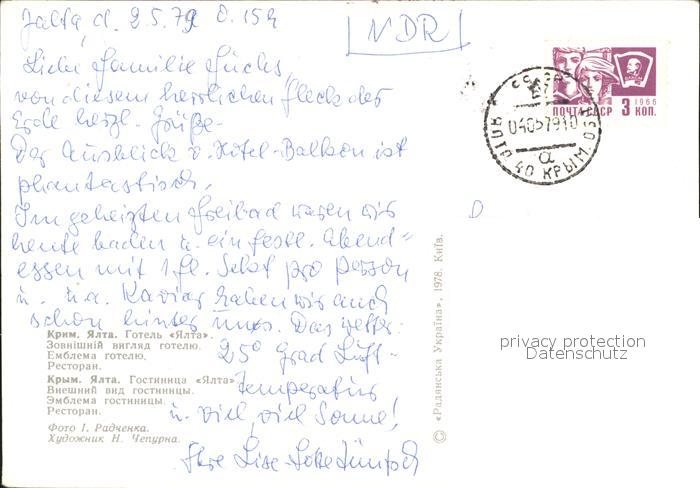 Jalta, d. 2.5.79
NDR
Liebe Familie Fuchs,
von diesem herrlichen Fleck der
Erde herzl. Grüße.
Der Ausblick v. Hotel-Balkon ist
phantastisch.
Im geheizten Freibad waren wir
heute baden u. ein festl. Abend=
essen mit 1 Fl. Sekt pro Person
u. u.a. Kaviar haben wir auch
schon hinter uns. Das Wetter:
25° Grad Luft-
temperatur
u. viel, viel Sonne!
Ihre Lise-Lotte
Крим. Ялта. Готель «Ялта».
Зовнішній вигляд готелю.
Емблема готелю.
Ресторан.
Крым. Ялта. Гостиница «Ялта».
Внешний вид гостиницы.
Эмблема гостиницы.
Ресторан.
Фото І. Радченка.
Художник Н. Чепурна.
© «Радянська Україна», 1978. Київ.
1966
ПОЧТА СССР 3 КОП.
СССР
04057910
а
40 КРЫМ. ОБЛ.
D
privacy protection
Datenschutz